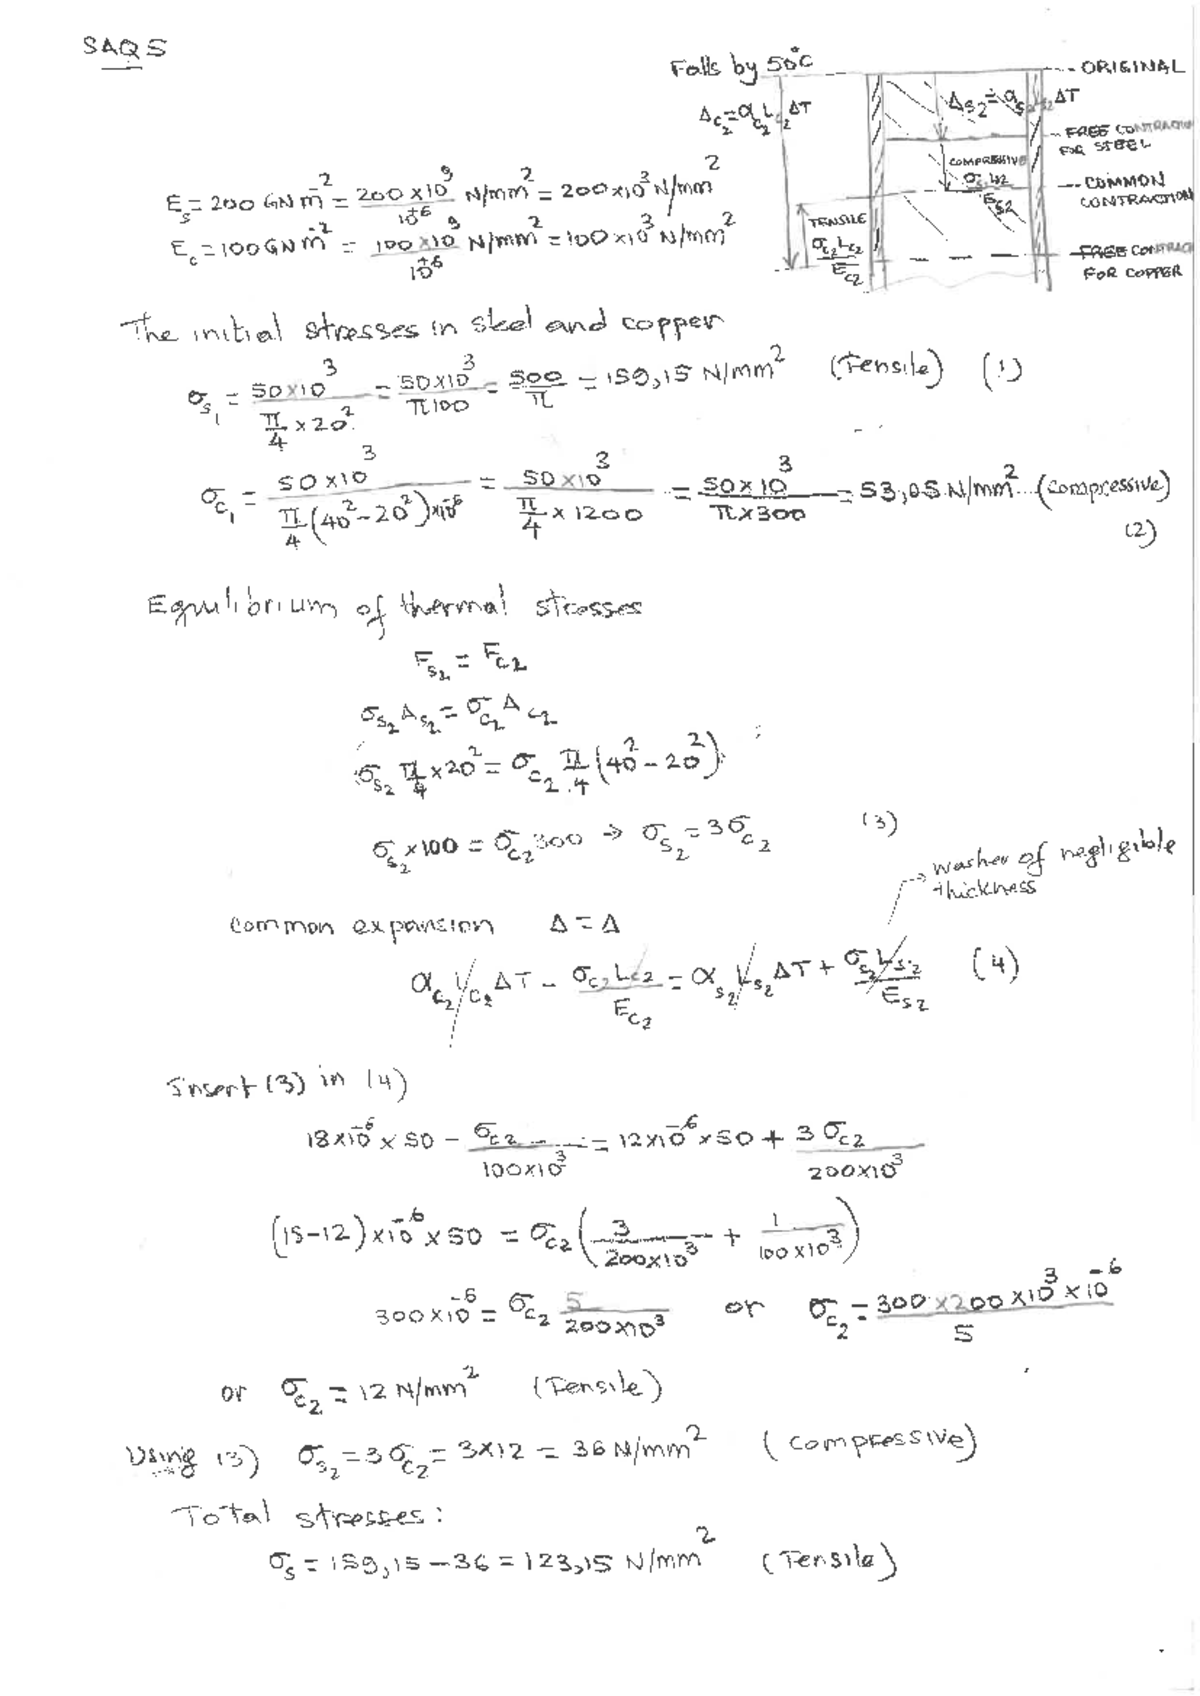 SAQ 5
Falls by 50°C
ORIGINAL
Δc2 = αc2 Lc2 ΔT
Δs2 = αs2 Ls2 ΔT
FREE CONTRACTION
FOR STEEL
COMPRESSIVE
σs2 Ls2 / Es2
COMMON
CONTRACTION
TENSILE
σc2 Lc2 / Ec2
FREE CONTRAC
FOR COPPER
Es = 200 GN m^-2 = 200 x 10^9 / 10^+6 N/mm^2 = 200 x 10^3 N/mm^2
Ec = 100 GN m^-2 = 100 x 10^9 / 10^+6 N/mm^2 = 100 x 10^3 N/mm^2
The initial stresses in steel and copper
σs1 = 50 x 10^3 / (π/4 x 20^2) = 50 x 10^3 / π100 = 500 / π = 159,15 N/mm^2 (Tensile) (1)
σc1 = 50 x 10^3 / (π/4 (40^2 - 20^2) x 10^-6) = 50 x 10^3 / (π/4 x 1200) = 50 x 10^3 / (π x 300) = 53,05 N/mm^2 (compressive)
(2)
Equilibrium of thermal stresses
Fs2 = Fc2
σs2 As2 = σc2 Ac2
σs2 π/4 x 20^2 = σc2 π/4 (40^2 - 20^2)
σs2 x 100 = σc2 300 → σs2 = 3σc2 (3)
washer of negligible
thickness
common expansion Δ = Δ
αc2 Lc2 ΔT - σc2 Lc2 / Ec2 = αs2 Ls2 ΔT + σs2 Ls2 / Es2 (4)
Insert (3) in (4)
18 x 10^-6 x 50 - σc2 / 100 x 10^3 = 12 x 10^-6 x 50 + 3σc2 / 200 x 10^3
(18-12) x 10^-6 x 50 = σc2 (3 / 200 x 10^3 + 1 / 100 x 10^3)
300 x 10^-6 = σc2 5 / 200 x 10^3 or σc2 = 300 x 200 x 10^3 x 10^-6 / 5
or σc2 = 12 N/mm^2 (Tensile)
Using (3) σs2 = 3σc2 = 3 x 12 = 36 N/mm^2 (compressive)
Total stresses:
σs = 159,15 - 36 = 123,15 N/mm^2 (Tensile)